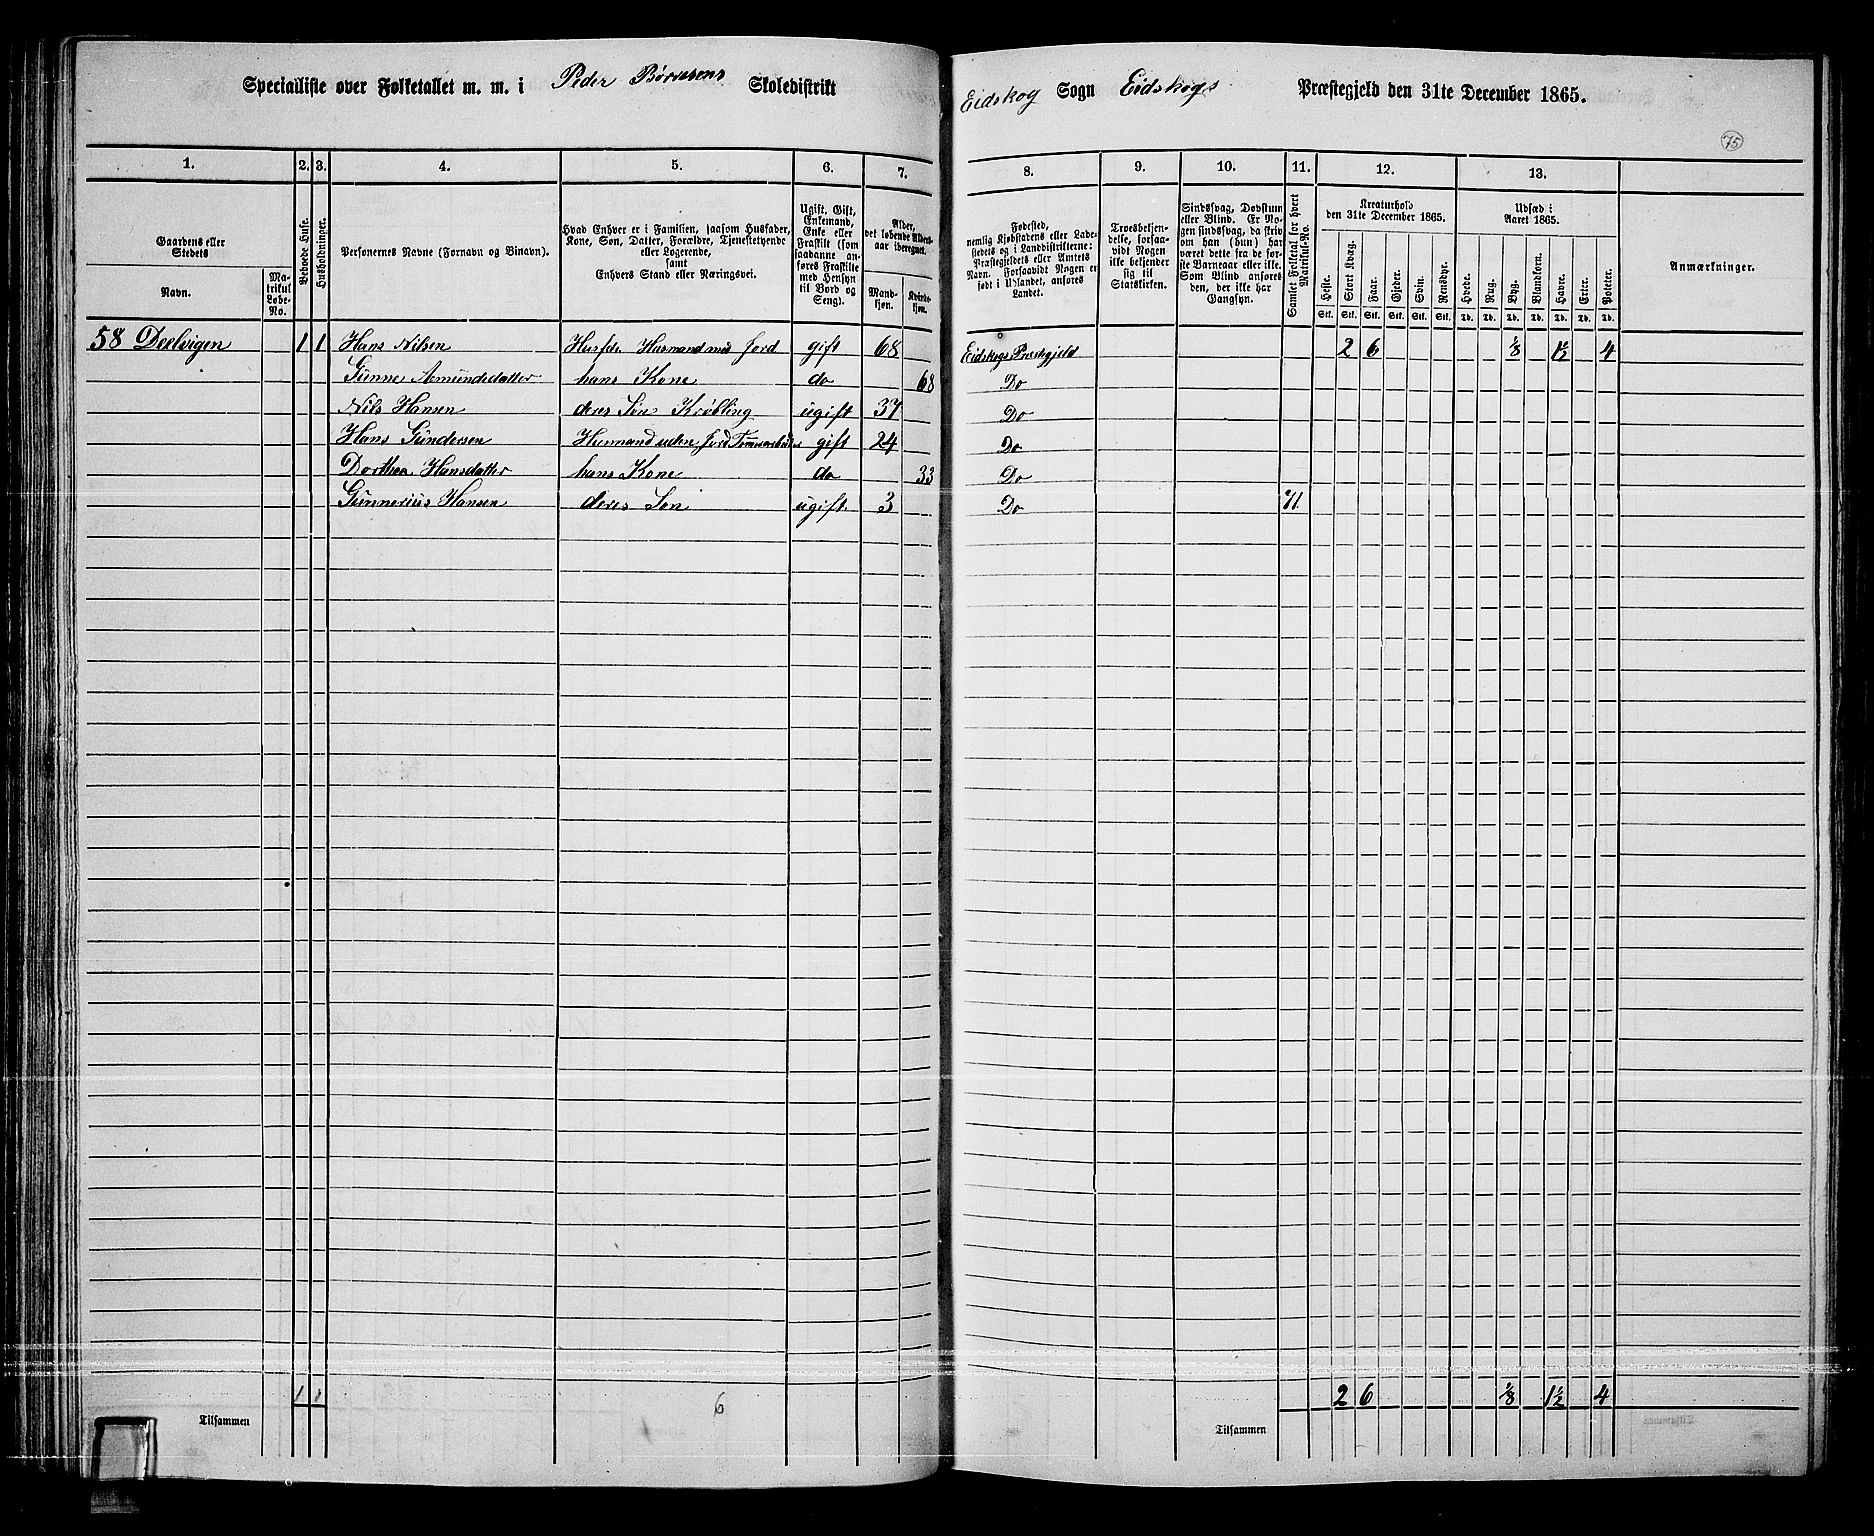 Specialliste over Folketallet m. m. i Peder Børresens Skoledistrikt Eidskog Sogn Eidskogs Præstegjeld den 31te December 1865.
75
1. 2. 3. 4. 5. 6. 7. 8. 9. 10. 11. 12. 13.
Gaardens eller Stedets
Navn.
Matrikul Løbe-No.
Beboede Huse.
Husholdninger.
Personernes Navne (Fornavn og Binavn).
Hvad Enhver er i Familien, saasom Husfader, Kone, Søn, Datter, Forældre, Tjenestetyende eller Logerende, samt Enhvers Stand eller Næringsvei.
Ugift, Gift, Enkemand, Enke eller Fraskilt (som saadanne anføres Fraskilte med Hensyn til Bord og Seng).
Alder, det løbende Aldersaar iberegnet.
Mandkjøn.
Kvindekjøn.
Fødested, nemlig Kjøbstadens eller Ladestedets og i Landdistrikterne: Præstegjeldets eller Amtets Navn. Forsaavidt Nogen er født i Udlandet, anføres Landet.
Troesbekjendelse, forsaavidt Nogen ikke bekjender sig til Statskirken.
Sindssvag, Døvstum eller Blind. Er Nogen sindssvag, da skriv om han (hun) har været dette fra de første Barneaar eller ikke. Som Blind anføres den, der ikke har Gangsyn.
Samlet Folketal for hvert Matrikul-No.
Kreaturhold den 31te December 1865.
Heste. Stort Kvæg. Faar. Gjeder. Svin. Rensdyr.
Stk. Stk. Stk. Stk. Stk. Stk.
Udsæd i Aaret 1865.
Hvede. Rug. Byg. Blandkorn. Havre. Erter. Poteter.
Td. Td. Td. Td. Td. Td. Td.
Anmærkninger.
58 Deelvigen 1 1 Hans Nilsen Husfdr Husmand med Jord gift 68 Eidskogs Præstgjeld 2 6 1/8 1 1/2 4
Gunne Amundsdatter hans Kone do 68 Do
Nils Hansen deres Søn Krøbling ugift 37 Do
Hans Gundersen Husmand uden Jord Tømmerarbeider gift 24 Do
Dorthea Hansdatter hans Kone do 33 Do
Gunnerius Hansen deres Søn ugift. 3 Do 11.
1 1 6 2 6 1/8 1 1/2 4
Tilsammen Tilsammen